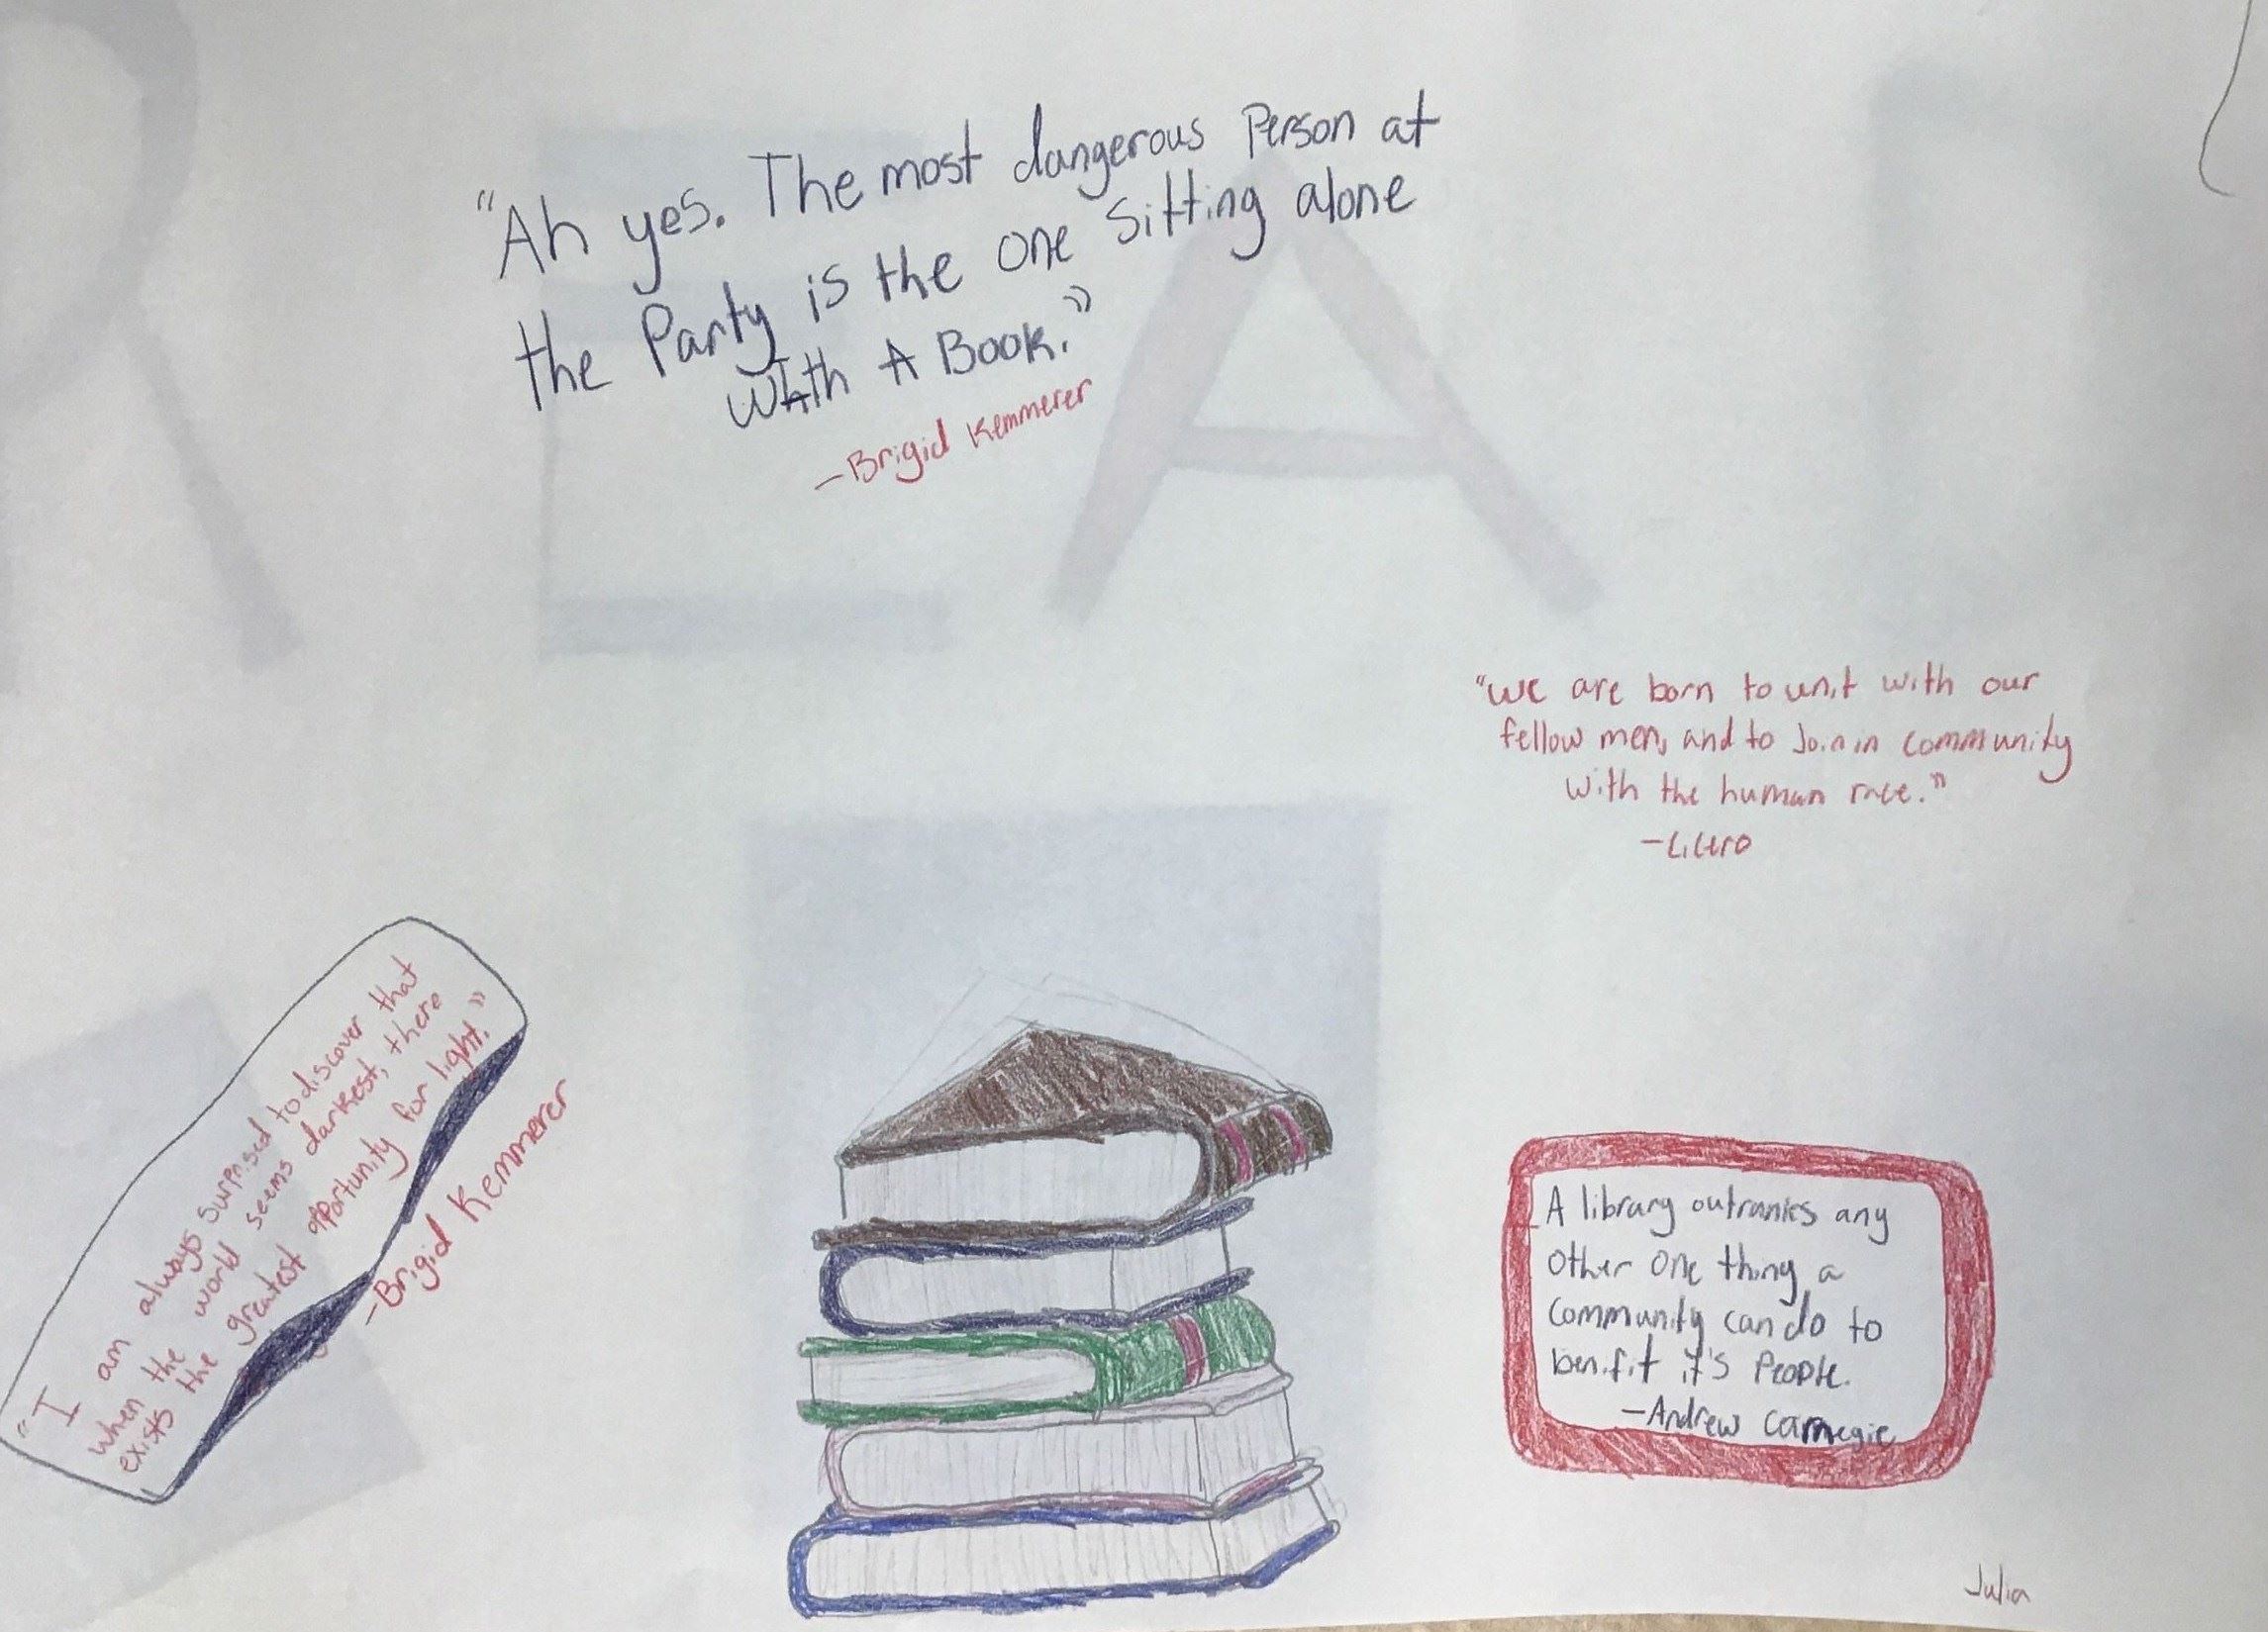 "Ah yes. The most dangerous Person at
the Party is the one sitting alone
With A Book."
-Brigid Kemmerer
"We are born to unit with our
fellow men, and to Join in community
with the human race."
-Cicero
"I am always surprised to discover that
when the world seems darkest, there
exists the greatest opportunity for light."
-Brigid Kemmerer
A library outranks any
other one thing a
community can do to
benifit it's People.
-Andrew Carnegie
Julia